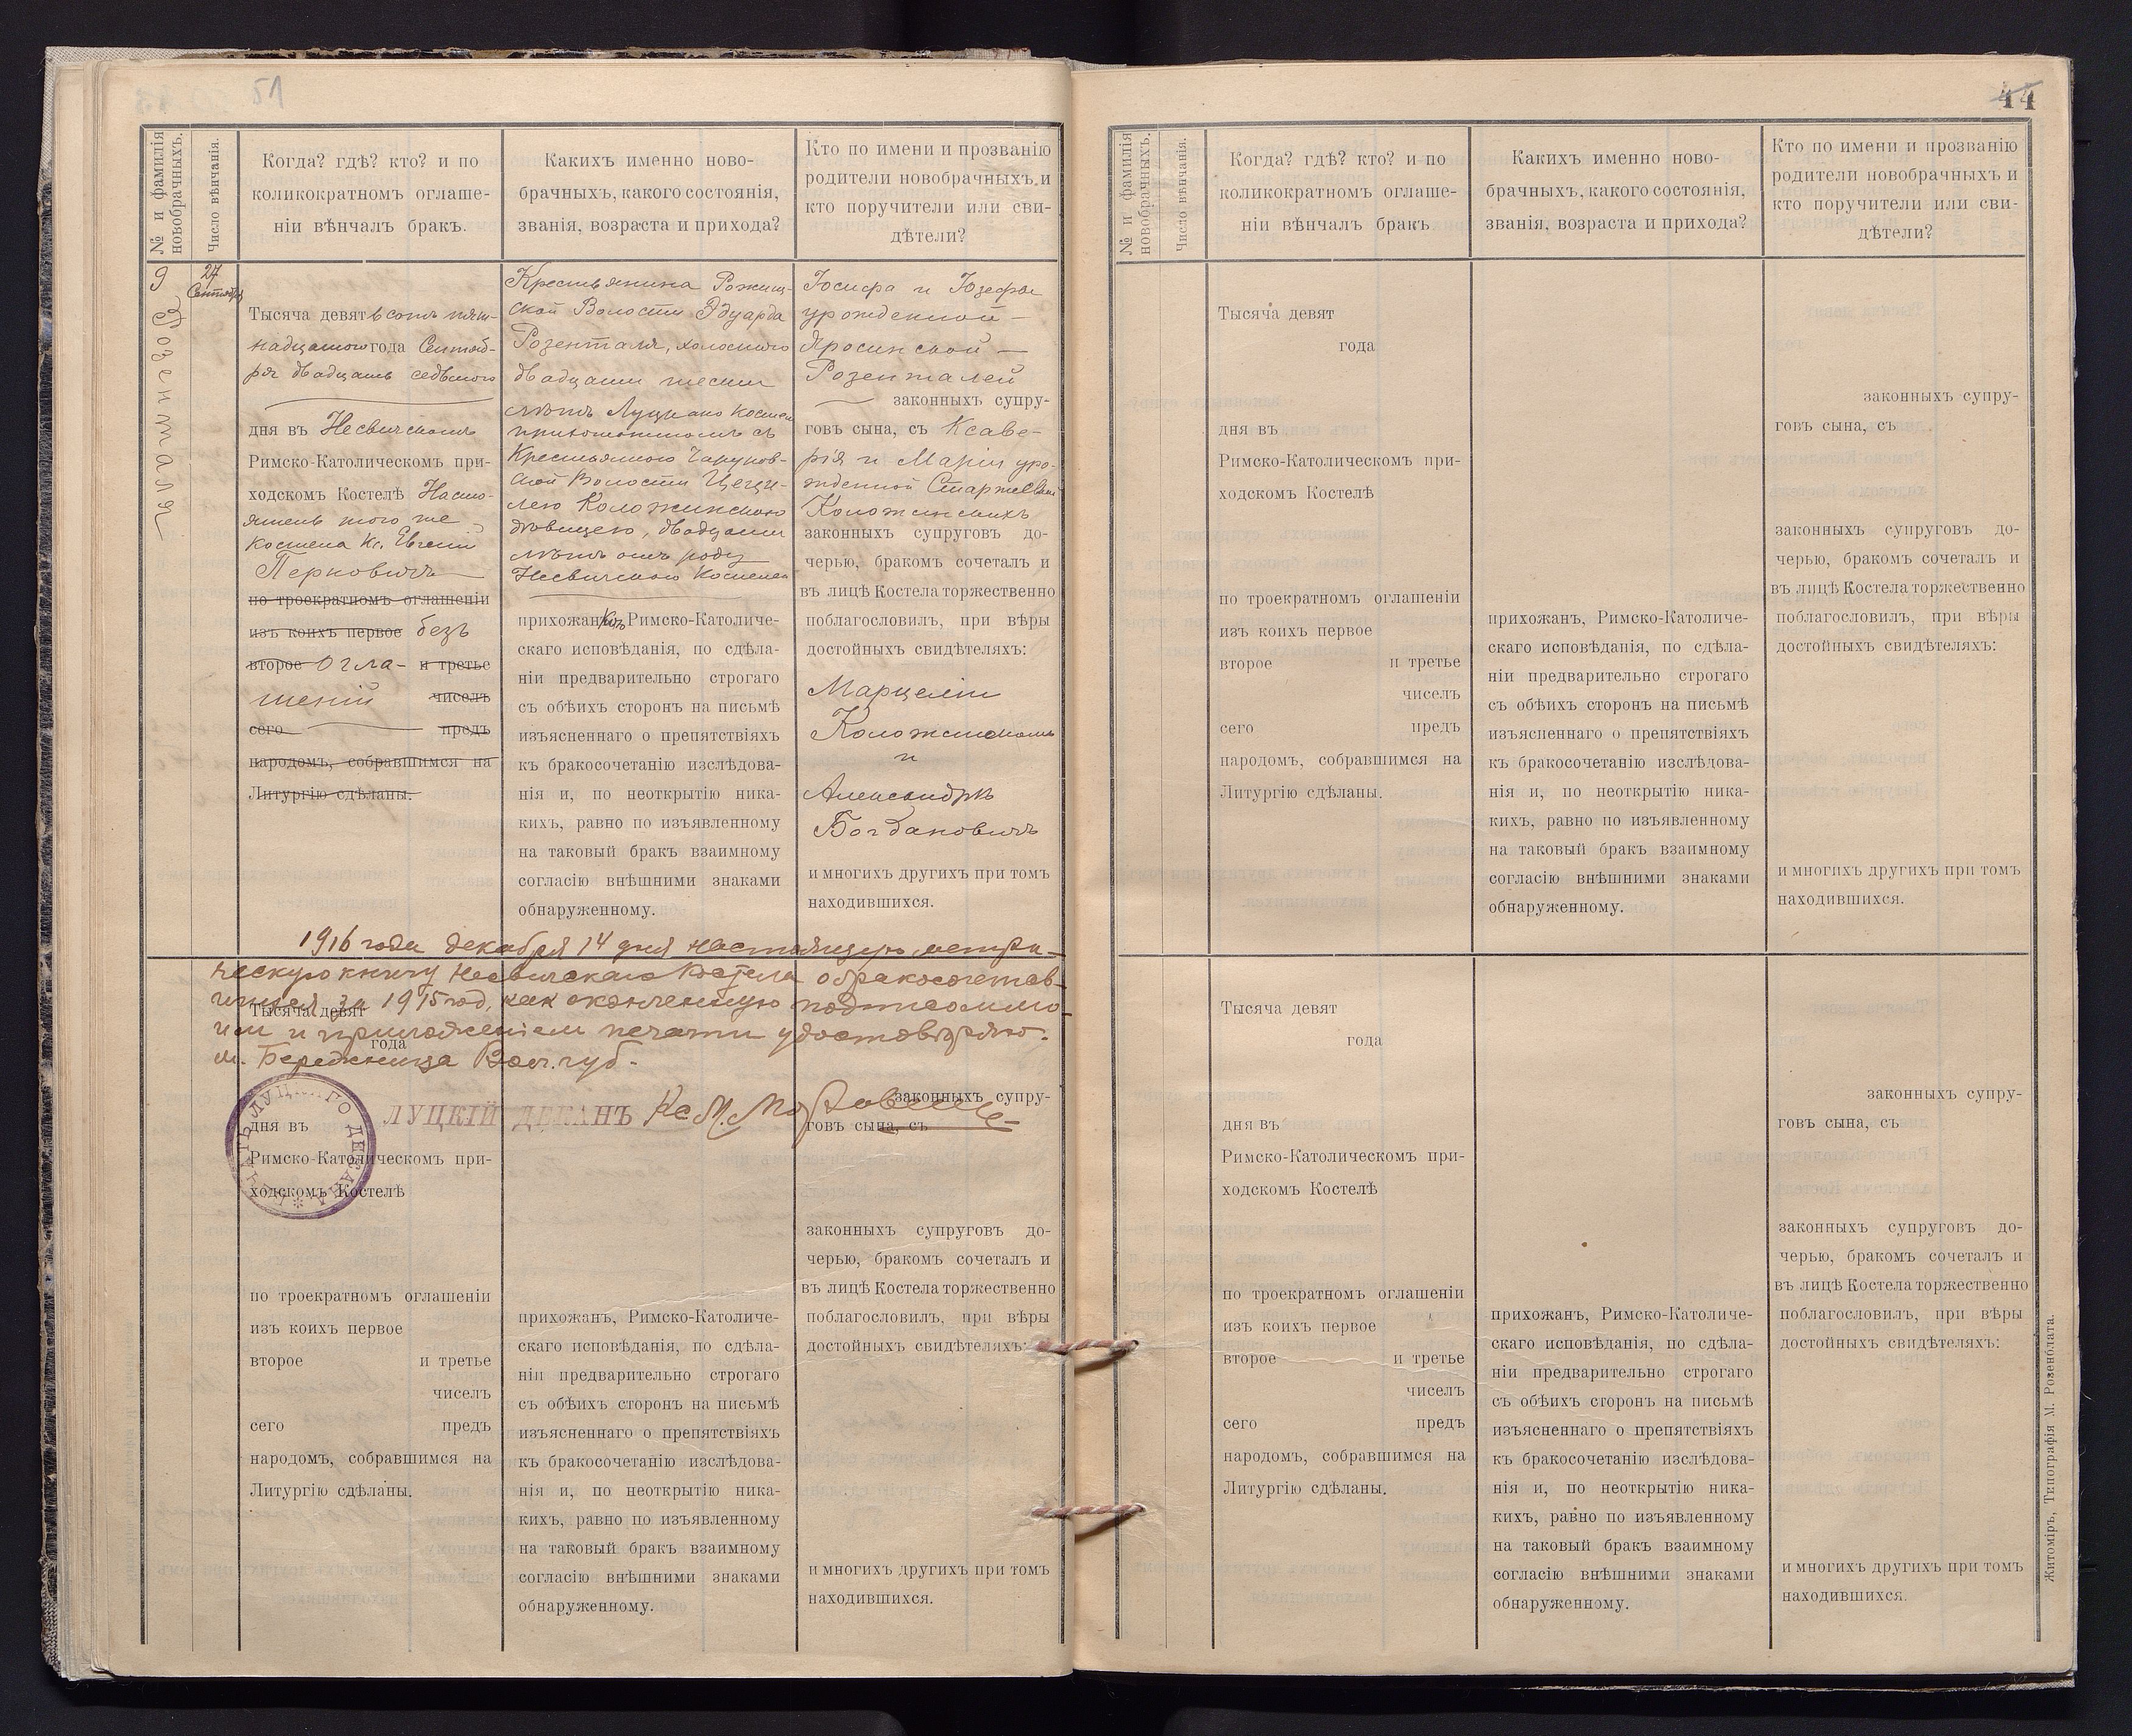 51
№ и фамилія новобрачныхъ.
Число вѣнчанія.
Когда? гдѣ? кто? и по
коликократномъ оглаше-
ніи вѣнчалъ бракъ.
Какихъ именно ново-
брачныхъ, какого состоянія,
званія, возраста и прихода?
Кто по имени и прозванію
родители новобрачныхъ и
кто поручители или сви-
дѣтели?
9
Розенталя
27
Сентября
Тысяча девятьсотъ пят-
надцатаго года Сентяб-
ря двадцать седьмого
дня въ Несвичскомъ
Римско-Католическомъ при-
ходскомъ Костелѣ Насто-
ятель того же
Костела Кс. Евгеній
Перковичъ
по троекратномъ оглашеніи
изъ коихъ первое безъ
второе огла- и третье
шеній чиселъ
сего предъ
народомъ, собравшимся на
Литургію сдѣланы.
Крестьянина Рожищ-
ской Волости Эдуарда
Розенталя, холостого
двадцати шести
лѣтъ Луцкаго Костела
прихожаниномъ съ
Крестьянкою Чаруков-
ской Волости Цеци-
лею Коложинскою
дѣвицею, двадцати
лѣтъ отъ роду
Несвичскаго Костела
прихожанкой Римско-Католиче-
скаго исповѣданія, по сдѣла-
ніи предварительно строгаго
съ обѣихъ сторонъ на письмѣ
изъясненнаго о препятствіяхъ
къ бракосочетанію изслѣдова-
нія и, по неоткрытію ника-
кихъ, равно по изъявленному
на таковый бракъ взаимному
согласію внѣшними знаками
обнаруженному.
Іосифа и Юзефы
урожденной
Яросинской
Розенталей
законныхъ супру-
говъ сына, съ Ксаве-
рія и Маріи уро-
жденной
Коложинскихъ
законныхъ супруговъ до-
черью, бракомъ сочеталъ и
въ лицѣ Костела торжественно
поблагословилъ, при вѣры
достойныхъ свидѣтеляхъ:
Марцеліи
Коложинскомъ
и
Александрѣ
Богдановичъ
и многихъ другихъ при томъ
находившихся.
1916 года декабря 14 дня настоящую метри-
ческую книгу Несвичскаго Костела о бракосочетав-
шихся за 1915 год, как оконченную подписомъ мо-
им и приложеніем печати удостовѣряю.
м. Бережница Вол. губ.
ЛУЦКІЙ ДЕКАНЪ Кс. М.
ПЕЧАТЬ ЛУЦКАГО ДЕКАНА
Тысяча девят
года
дня въ
Римско-Католическомъ при-
ходскомъ Костелѣ
по троекратномъ оглашеніи
изъ коихъ первое
второе и третье
чиселъ
сего предъ
народомъ, собравшимся на
Литургію сдѣланы.
прихожанъ, Римско-Католиче-
скаго исповѣданія, по сдѣла-
ніи предварительно строгаго
съ обѣихъ сторонъ на письмѣ
изъясненнаго о препятствіяхъ
къ бракосочетанію изслѣдова-
нія и, по неоткрытію ника-
кихъ, равно по изъявленному
на таковый бракъ взаимному
согласію внѣшними знаками
обнаруженному.
законныхъ супру-
говъ сына, съ
законныхъ супруговъ до-
черью, бракомъ сочеталъ и
въ лицѣ Костела торжественно
поблагословилъ, при вѣры
достойныхъ свидѣтеляхъ:
и многихъ другихъ при томъ
находившихся.
44
№ и фамилія новобрачныхъ.
Число вѣнчанія.
Когда? гдѣ? кто? и по
коликократномъ оглаше-
ніи вѣнчалъ бракъ
Какихъ именно ново-
брачныхъ, какого состоянія,
званія, возраста и прихода?
Кто по имени и прозванію
родители новобрачныхъ и
кто поручители или сви-
дѣтели?
Тысяча девят
года
дня въ
Римско-Католическомъ при-
ходскомъ Костелѣ
по троекратномъ оглашеніи
изъ коихъ первое
второе и третье
чиселъ
сего предъ
народомъ, собравшимся на
Литургію сдѣланы.
прихожанъ, Римско-Католиче-
скаго исповѣданія, по сдѣла-
ніи предварительно строгаго
съ обѣихъ сторонъ на письмѣ
изъясненнаго о препятствіяхъ
къ бракосочетанію изслѣдова-
нія и, по неоткрытію ника-
кихъ, равно по изъявленному
на таковый бракъ взаимному
согласію внѣшними знаками
обнаруженному.
законныхъ супру-
говъ сына, съ
законныхъ супруговъ до-
черью, бракомъ сочеталъ и
въ лицѣ Костела торжественно
поблагословилъ, при вѣры
достойныхъ свидѣтеляхъ:
и многихъ другихъ при томъ
находившихся.
Тысяча девят
года
дня въ
Римско-Католическомъ при-
ходскомъ Костелѣ
по троекратномъ оглашеніи
изъ коихъ первое
второе и третье
чиселъ
сего предъ
народомъ, собравшимся на
Литургію сдѣланы.
прихожанъ, Римско-Католиче-
скаго исповѣданія, по сдѣла-
ніи предварительно строгаго
съ обѣихъ сторонъ на письмѣ
изъясненнаго о препятствіяхъ
къ бракосочетанію изслѣдова-
нія и, по неоткрытію ника-
кихъ, равно по изъявленному
на таковый бракъ взаимному
согласію внѣшними знаками
обнаруженному.
законныхъ супру-
говъ сына, съ
законныхъ супруговъ до-
черью, бракомъ сочеталъ и
въ лицѣ Костела торжественно
поблагословилъ, при вѣры
достойныхъ свидѣтеляхъ:
и многихъ другихъ при томъ
находившихся.
Житоміръ, Типографія М. Розенблата.